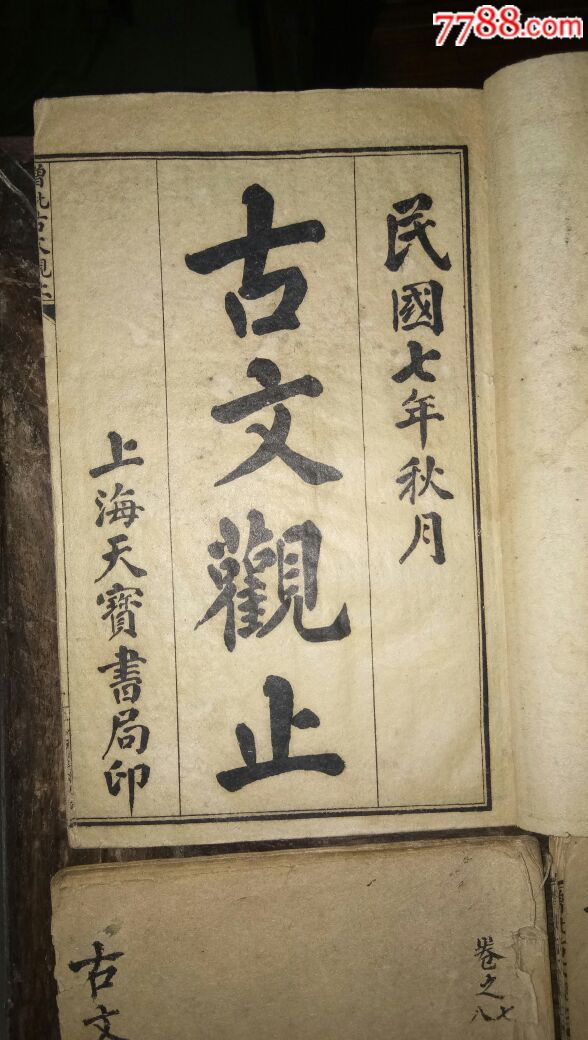 7788.com
民國七年秋月
古文觀止
上海天寳書局印
增批古文觀止
古文
卷之七八